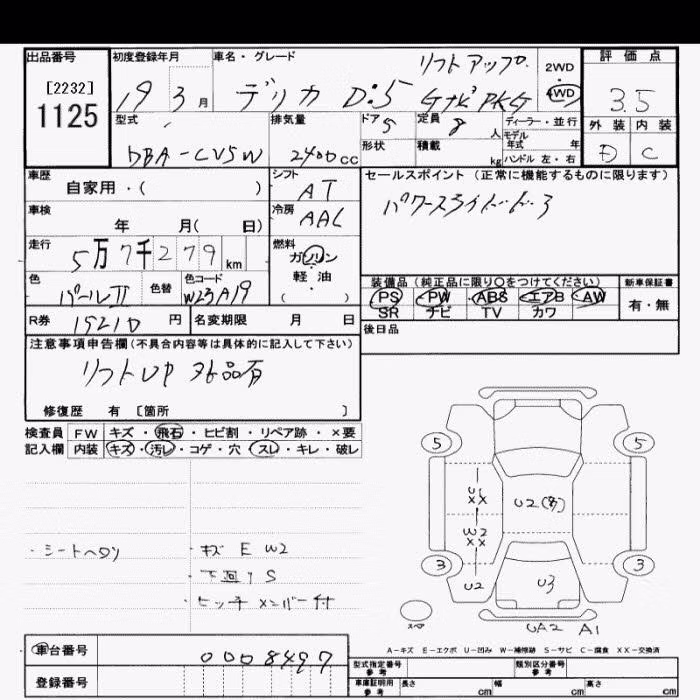 出品番号 初度登録年月 車名・グレード 評価点
[2232]
1125
19 3月 デリカ D:5 リフトアップ
GナビPKG
2WD
4WD
3.5
型式 排気量 ドア 5 定員 8人 ディーラー・並行
モデル年式 年
形状 積載 kg ハンドル 左・右
外装 内装
D C
DBA-CV5W 2400cc
車歴 自家用・( )
シフト AT
セールスポイント(正常に機能するものに限ります)
パワースライドドア
車検 年 月( 日)
冷房 AAC
走行 5万7千279km
燃料 ガソリン
軽・油
( )
色 パールII 色替 色コード W23A19
装備品(純正品に限り○をつけてください) 新車保証書
PS PW ABS エアB AW 有・無
SR ナビ TV カワ
R券 15210円 名変期限 月 日
後日品
注意事項申告欄(不具合内容等は具体的に記入して下さい)
リフトUP 外品有
修復歴 有 [箇所 ]
検査員 FW キズ・飛石・ヒビ割・リペア跡・×要
記入欄 内装 キズ・汚レ・コゲ・穴・スレ・キレ・破レ
・シートヘタリ
・キズ E W2
・下回り S
・ヒッチメンバー付
5 5
U2
W2
XX
3 3
U2 U3
スペア
UA2 A1
A-キズ E-エクボ U-凹み W-補修跡 S-サビ C-腐食 XX-交換済
車台番号 0008497
登録番号
型式指定番号 参考 類別区分番号 参考
車庫証明用 参考 長さ cm 幅 cm 高さ cm